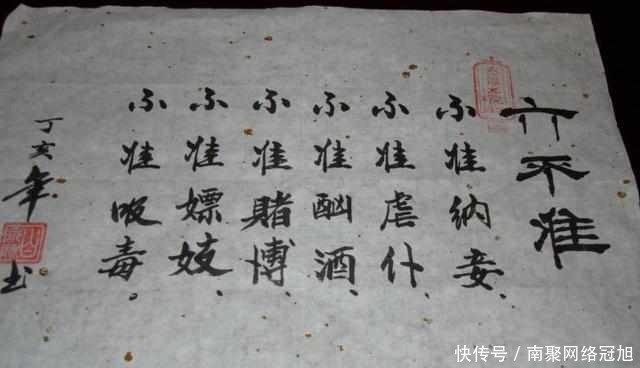 六不准
不准纳妾、
不准虐仆、
不准酗酒、
不准赌博、
不准嫖妓、
不准吸毒。
丁亥年
书
快传号/南聚网络冠旭